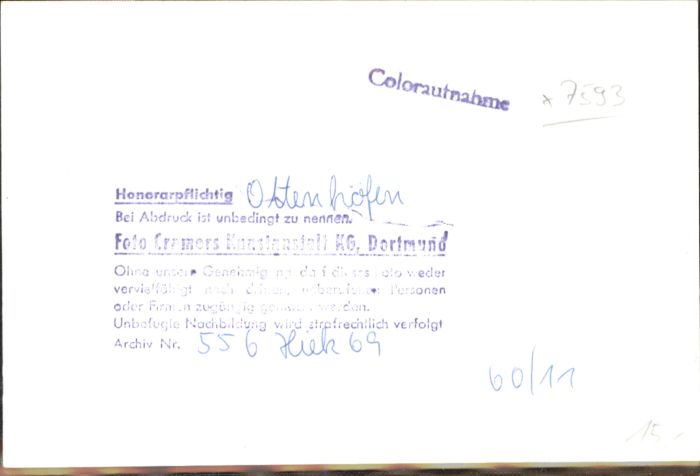 Coloraufnahme
x 7593
Honorarpflichtig Ostenhöfen
Bei Abdruck ist unbedingt zu nennen:
Foto Cramers Kunstanstalt KG, Dortmund
Ohne unsere Genehmigung darf dieses Foto weder
vervielfältigt noch dritten, Personen
oder Firmen zugängig gemacht werden.
Unbefugte Nachbildung wird strafrechtlich verfolgt
Archiv Nr. 556 69
60/11
15,-